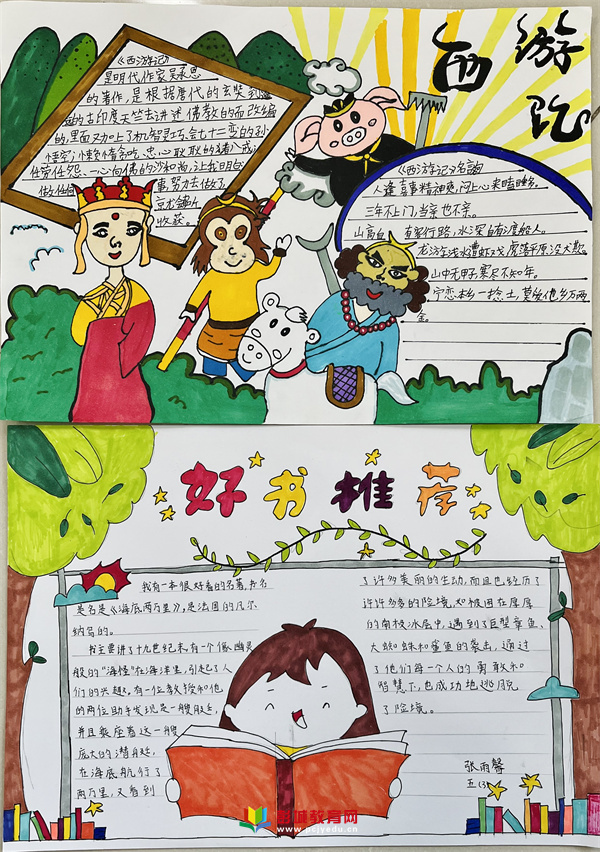 西游记
《西游记》
是明代作家吴承恩
的著作,是根据唐代的玄奘到
的古印度天竺去讲述佛教的而改编
的,里面又加上了机智灵巧、会七十二变的孙
悟空;憨憨傻傻贪吃、忠心耿耿的猪八戒;
任劳任怨、一心向佛的沙和尚,让我明白
做任何
事,努力去做了,
收获。
《西游记》名言
人逢喜事精神爽,闷上心来瞌睡多。
三年不上门,当亲也不亲。
山高自有客行路,水深自有渡船人。
龙游浅水遭虾戏,虎落平原没犬欺。
山中无甲子,寒尽不知年。
宁恋本乡一捻土,莫爱他乡万两
金。
好书推荐
我有一本很好看的名著,书名
是名是《海底两万里》,是法国的凡尔
纳写的。
书主要讲了十九世纪末有一个像幽灵
般的“海怪”在海洋里,引起了人
们的兴趣,有一位教授和他
的两位助手发现是一艘艇,
并且乘座着这一艘
庞大的潜艇,
在海底航行了
两万里,又看到
了许多美丽的生动,而且也经历了
许许多多的险境,如被困在厚厚
的南极冰层中,遇到了巨型章鱼、
大蜘蛛和鲨鱼的袭击,通过
了他们每一个人的勇敢和
智慧下,也成功地逃脱
了险境。
张雨馨
五(3)
教育网
www.pcjyedu.cn